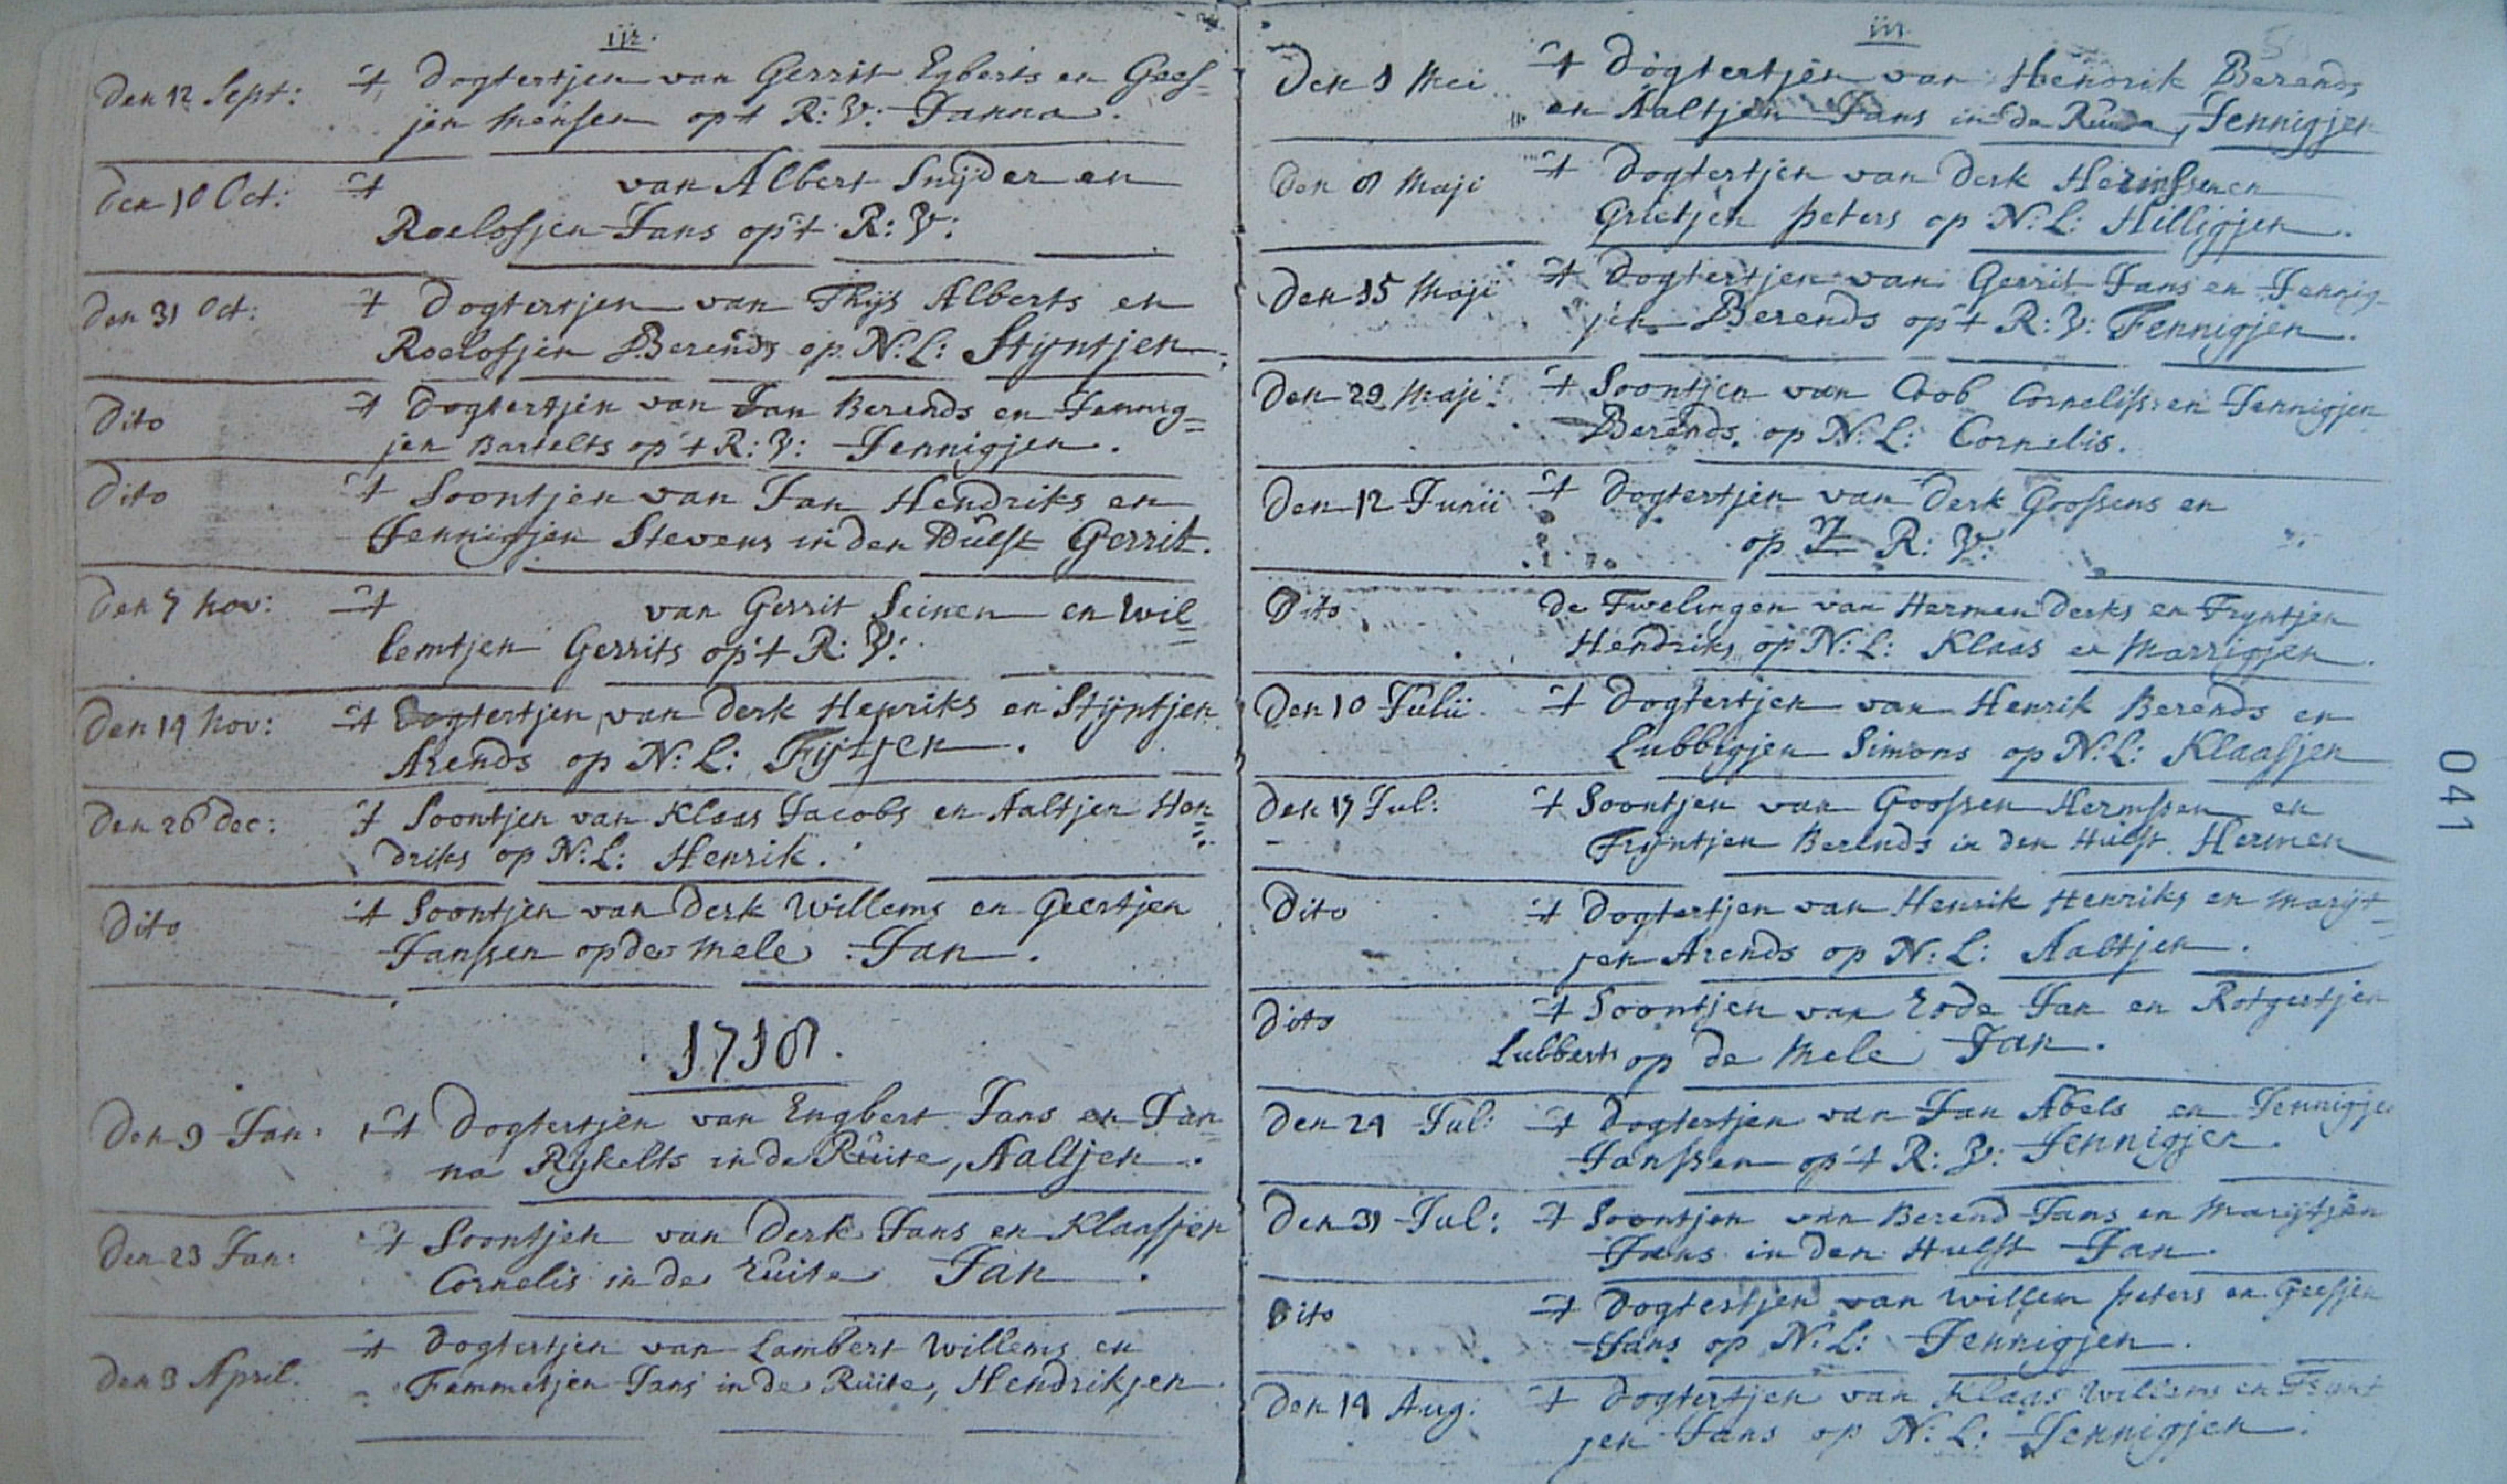 ijr.
Den 12 Sept: 't Dogtertjen van Gerrit Egberts en Gees=
jen Mensen op 't R: V: Janna.
Den 10 Oct: 't van Albert Snijder en
Roelofjen Jans op 't R: V:
Den 31 Oct: 't Dogtertjen van Thijs Alberts en
Roelofjen Berends op N: L: Stijntjen.
Dito 't Dogtertjen van Jan Berends en Jennig=
jen Bartelts op 't R: V: Jennigjen.
Dito 't Soontjen van Jan Hendriks en
Jennigjen Stevens in den Hulst Gerrit.
Den 7 Nov: 't van Gerrit Seinen en Wil=
lemtjen Gerrits op 't R: V:
Den 14 Nov: 't Dogtertjen van Derk Henriks en Stijntjen
Arends op N: L: Fijtjen.
Den 26 Dec: 't Soontjen van Klaas Jacobs en Aaltjen Hen=
driks op N: L: Henrik.
Dito 't Soontjen van Derk Willems en Geertjen
Janssen op de Mele Jan.
1718.
Den 9 Jan: 't Dogtertjen van Engbert Jans en Jan=
na Rykelts in de Ruite, Aaltjen.
Den 23 Jan: 't Soontjen van Derk Jans en Klaasjen
Cornelis in de ruite Jan.
Den 3 April. 't Dogtertjen van Lambert Willems en
Femmetjen Jans in de Ruite, Hendrikjen.
iiij
Den 1 Mei 't Dogtertjen van Hendrik Berends
en Aaltjen Jans in de, Jennigjen
Den 8 Maji 't Dogtertjen van Derk Hermssen en
Grietjen Peters op N: L: Hilligjen.
Den 15 Maji 't Dogtertjen van Gerrit Jans en Jennig=
jen Berends op 't R: V: Jennigjen.
Den 29 Maji: 't Soontjen van Coob Cornelissen Jennigjen
Berends. op N: L: Cornelis.
Den 12 Junii 't Dogtertjen van Derk Goossens en
op 't R: V:
Dito de Twelingen van Hermen Derks en Tryntjen
Hendriks op N: L: Klaas en Marrigjen.
Den 10 Julii 't Dogtertjen van Henrik Berends en
Lubbigjen Simons op N: L: Klaasjen
Den 17 Jul: 't Soontjen van Goossen Hermssen en
Trijntjen Berends in den Hulst Hermen
Dito 't Dogtertjen van Henrik Henriks en Marijt=
jen Arends op N: L: Aaltjen.
Dito 't Soontjen van rode Jan en Rotgertjen
Lubberts op de Mele Jan.
Den 24 Jul: 't Dogtertjen van Jan Abels en Jennigje
Janssen op 't R: V: Jennigjen.
Den 31 Jul: 't Soontjen van Berend Jans en Marijtjen
Jans in den Hulst Jan.
Dito 't Dogtertjen van Willem Peters en Geesjen
Jans op N: L: Jennigjen.
Den 14 Aug: 't Dogtertjen van Klaas Willems en Trynt
jen Jans op N: L: Jennigjen.
041